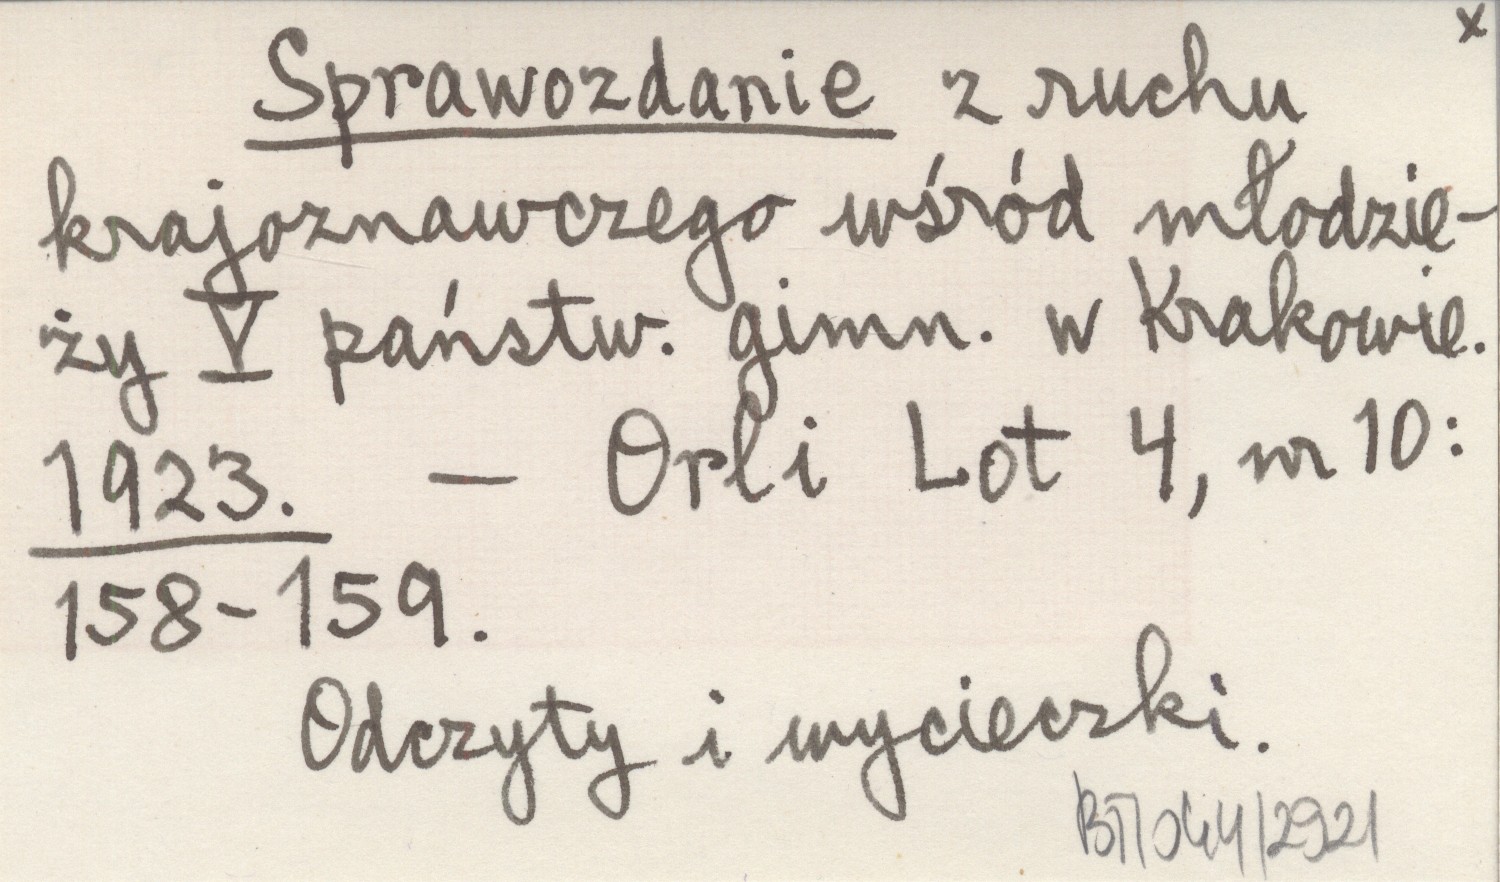 x
Sprawozdanie z ruchu
krajoznawczego wśród młodzie-
ży V państw. gimn. w Krakowie.
1923. — Orli Lot 4, nr 10:
158-159.
Odczyty i wycieczki.